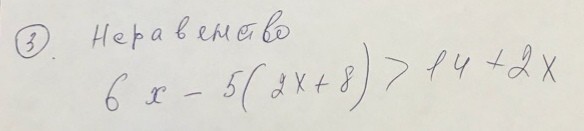 3. Неравенство
6x - 5(2x+8) > 14 + 2x